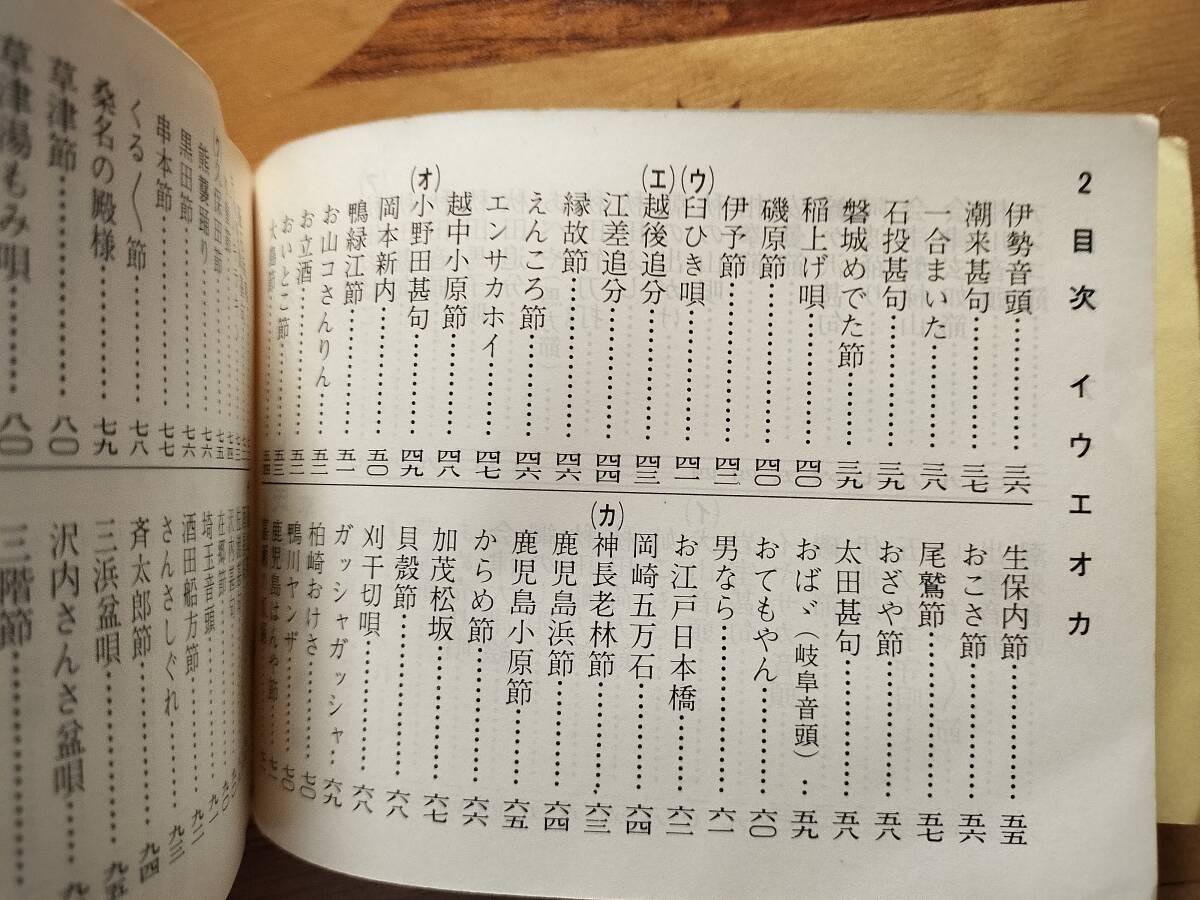 2 目次 イウエオカ
伊勢音頭……三六
潮来甚句……三七
一合まいた……三八
石投甚句……三九
磐城めでた節……三九
稲上げ唄……四〇
磯原節……四〇
伊予節……四二
(ウ)臼ひき唄……四一
(エ)越後追分……四三
江差追分……四四
縁故節……四六
えんころ節……四六
エンサカホイ……四七
越中小原節……四八
(オ)小野田甚句……四九
岡本新内……五〇
鴨緑江節……五一
お山コさんりん……五二
お立酒……五二
おいとこ節……五三
大島節……五四
生保内節……五五
おこさ節……五六
尾鷲節……五七
おざや節……五八
太田甚句……五八
おばゞ(岐阜音頭)……五九
おてもやん……六〇
男なら……六一
お江戸日本橋……六二
岡崎五万石……六四
(カ)神長老林節……六三
鹿児島浜節……六四
鹿児島小原節……六五
からめ節……六六
加茂松坂……六七
貝殻節……六八
刈干切唄……六八
ガッシャガッシャ……六九
柏崎おけさ……七〇
鴨川ヤンザ……七〇
鹿児島はんや節……七一
熊襲踊り……七六
黒田節……七六
串本節……七七
くる〱節……七八
桑名の殿様……七九
草津節……八〇
草津湯もみ唄……八〇
在郷節……九〇
埼玉音頭……九一
酒田船方節……九二
さんさしぐれ……九三
斉太郎節……九四
三浜盆唄……九五
沢内さんさ盆唄……
三階節……